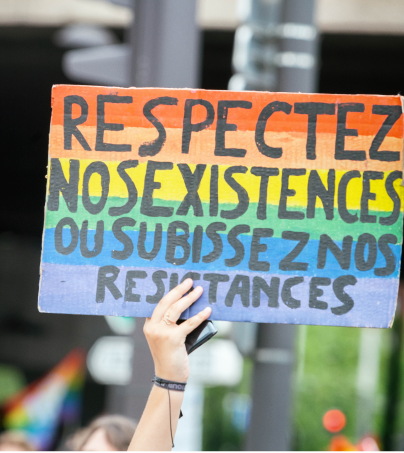 RESPECTEZ
NOS EXISTENCES
OU SUBISSEZ NOS
RESISTANCES